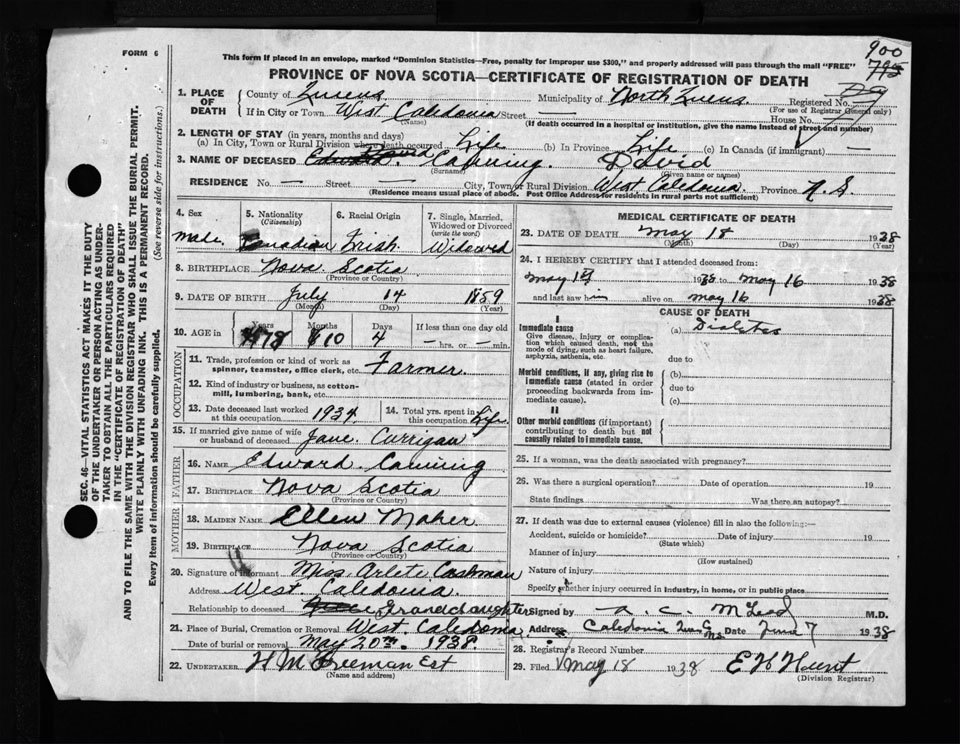 FORM 6
900
795
This form If placed in an envelope, marked "Dominion Statistics—Free, penalty for improper use $300," and properly addressed will pass through the mail "FREE"
PROVINCE OF NOVA SCOTIA—CERTIFICATE OF REGISTRATION OF DEATH
1. PLACE OF DEATH County of Queens Municipality of North Queens Registered No.
(For use of Registrar General only)
If in City or Town West Caledonia Street — House No.
(Name) (If death occurred in a hospital or institution, give the name instead of street and number)
2. LENGTH OF STAY (in years, months and days)
(a) In City, Town or Rural Division where death occurred Life (b) In Province Life (c) In Canada (if immigrant) —
3. NAME OF DECEASED Edward David Canning. David
(Surname) (Given name or names)
RESIDENCE No. — Street — City, Town or Rural Division West Caledonia. Province N. S
(Residence means usual place of abode. Post Office Address for residents in rural parts not sufficient)
4. Sex 5. Nationality 6. Racial Origin 7. Single, Married, Widowed or Divorced
(Citizenship) (write the word)
Male. Canadian Irish. Widowed
8. BIRTHPLACE Nova Scotia
(Province or Country)
9. DATE OF BIRTH July 14 1859
(Month) (Day) (Year)
10. AGE in Years Months Days If less than one day old
78 10 4 — hrs. or — min.
OCCUPATION
11. Trade, profession or kind of work as spinner, teamster, office clerk, etc. Farmer.
12. Kind of industry or business, as cotton-mill, lumbering, bank, etc.
13. Date deceased last worked at this occupation 1934. 14. Total yrs. spent in this occupation Life.
15. If married give name of wife or husband of deceased Jane. Currigan
FATHER
16. NAME Edward. Canning
17. BIRTHPLACE Nova Scotia
(Province or Country)
MOTHER
18. MAIDEN NAME Ellen Maher
19. BIRTHPLACE Nova Scotia
(Province or Country)
20. Signature of informant Miss Arlete Cashman
Address West. Caledonia.
Relationship to deceased Granddaughter
21. Place of Burial, Cremation or Removal West. Caledonia.
Date of burial or removal May 20th. 1938.
22. UNDERTAKER H M Freeman Est
(Name and address)
MEDICAL CERTIFICATE OF DEATH
23. DATE OF DEATH May 18 1938
(Month) (Day) (Year)
24. I HEREBY CERTIFY that I attended deceased from:
May 1938 to May 16 1938
and last saw him alive on May 16 1938
CAUSE OF DEATH
I
Immediate cause (a) Diabetes
Give disease, injury or complication which caused death, not the mode of dying, such as heart failure, asphyxia, asthenia, etc.
due to
Morbid conditions, if any, giving rise to immediate cause (stated in order proceeding backwards from immediate cause). (b)
due to
(c)
II
Other morbid conditions (if important) contributing to death but not causally related to immediate cause.
25. If a woman, was the death associated with pregnancy?
26. Was there a surgical operation? Date of operation 19
State findings Was there an autopsy?
27. If death was due to external causes (violence) fill in also the following:—
Accident, suicide or homicide? Date of injury 19
(State which)
Manner of injury
(How sustained)
Nature of injury
Specify whether injury occurred in Industry, in home, or in public place
Signed by A. C. McLeod M.D.
Address Caledonia Date June 7 1938
28. Registrar's Record Number
29. Filed May 18 1938 E H Hunt
(Division Registrar)
SEC. 46—VITAL STATISTICS ACT MAKES IT THE DUTY
OF THE UNDERTAKER OR PERSON ACTING AS UNDER-
TAKER TO OBTAIN ALL THE PARTICULARS REQUIRED
IN THE "CERTIFICATE OF REGISTRATION OF DEATH"
AND TO FILE THE SAME WITH THE DIVISION REGISTRAR WHO SHALL ISSUE THE BURIAL PERMIT.
WRITE PLAINLY WITH UNFADING INK. THIS IS A PERMANENT RECORD.
Every item of information should be carefully supplied. (See reverse side for instructions.)